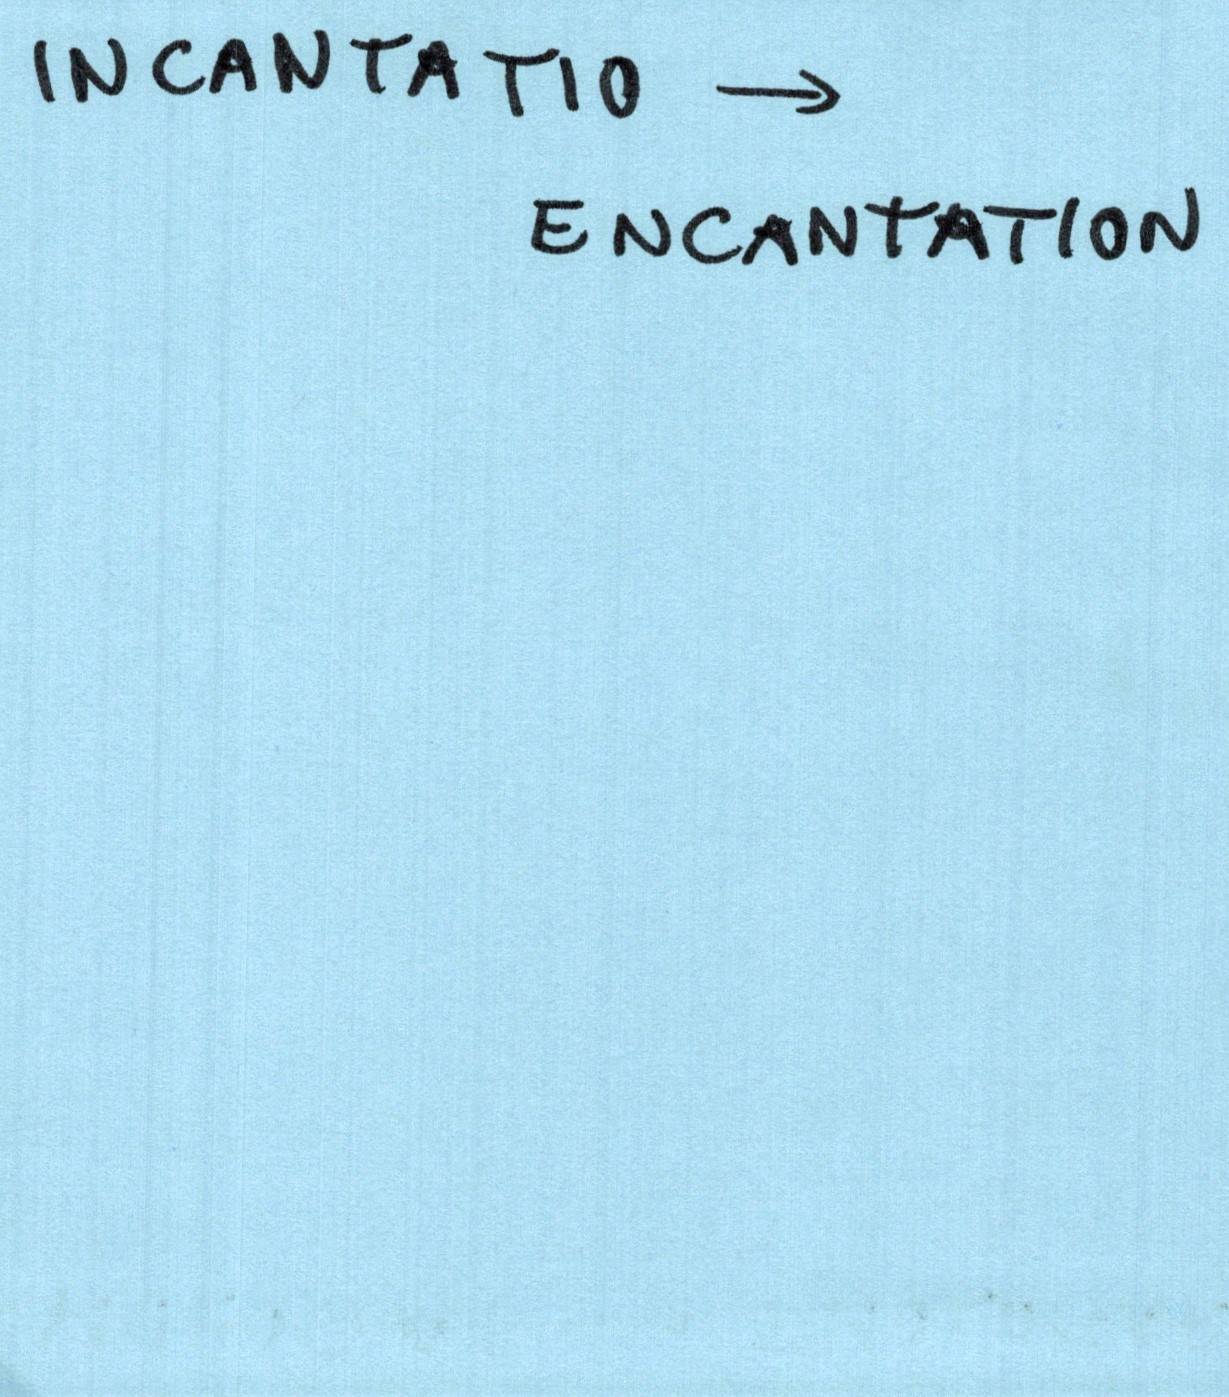 INCANTATIO →
ENCANTATION